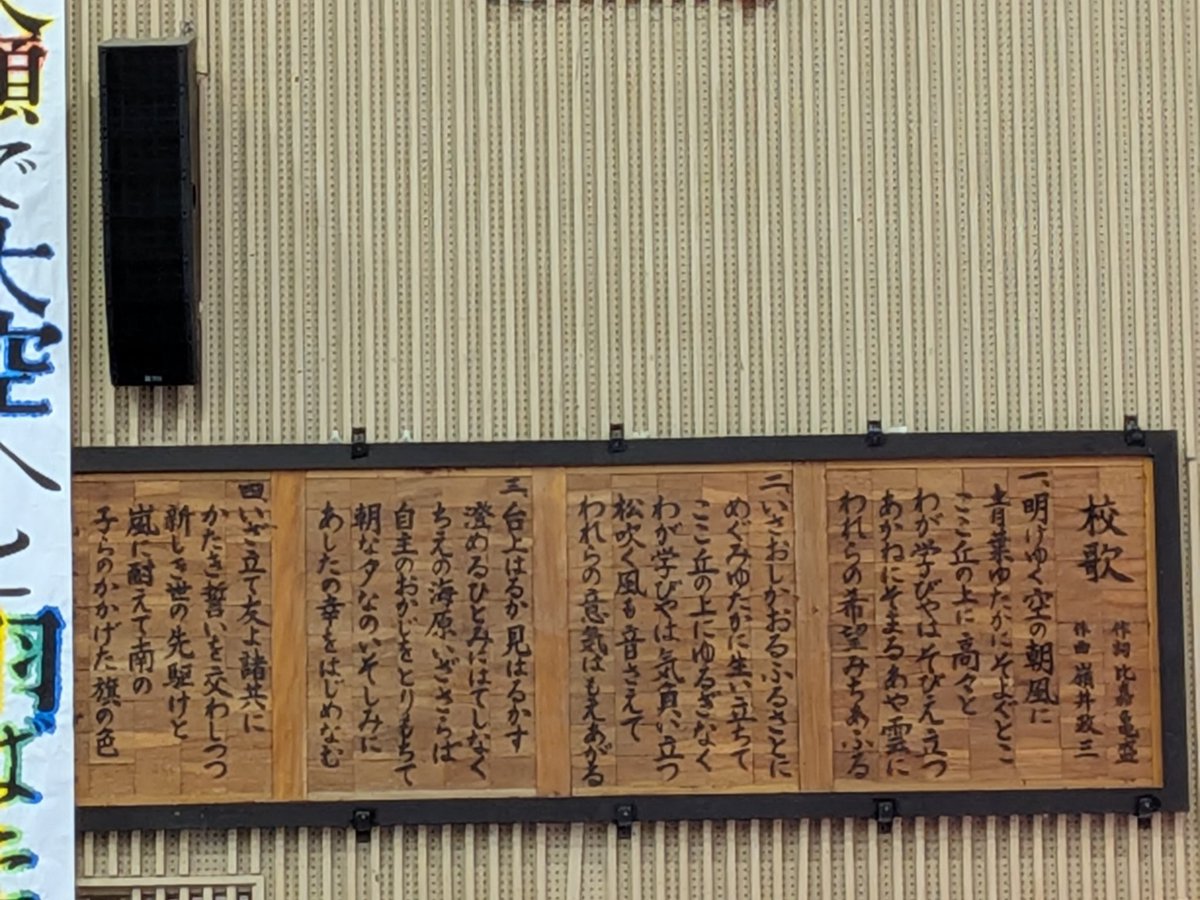 校歌
作詞 比嘉亀盛
作曲 嶺井政三
一、明けゆく空の朝風に
青葉ゆたかにそよぐとこ
ここ丘の上に高々と
わが学びやはそびえ立つ
あかねにそまるあや雲に
われらの希望みちあふる
二、いさおしかおるふるさとに
めぐみゆたかに生い立ちて
ここ丘の上にゆるぎなく
わが学びやは気負い立つ
松吹く風も音さえて
われらの意気はもえあがる
三、台上はるか見はるかす
澄めるひとみにはてしなく
ちえの海原いざさらば
自主のおかじをとりもちて
朝な夕なのいそしみに
あしたの幸をはじめなむ
四、いざ立て友よ諸共に
かたき誓いを交わしつつ
新しき世の先駆けと
嵐に耐えて南の
子らのかかげた旗の色
顔で大空へと羽ばた